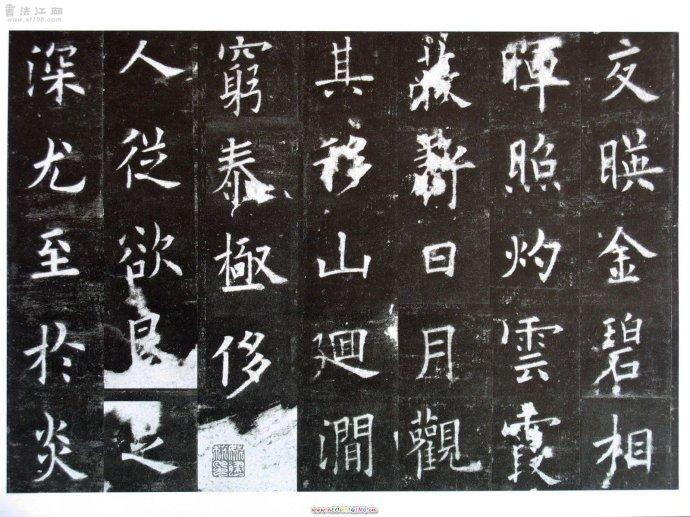 書法江湖
www.sf108.com
交暎金碧相
暉照灼雲霞
蔽虧日月觀
其移山廻澗
窮泰極侈
人從欲良足
深尤至於炎